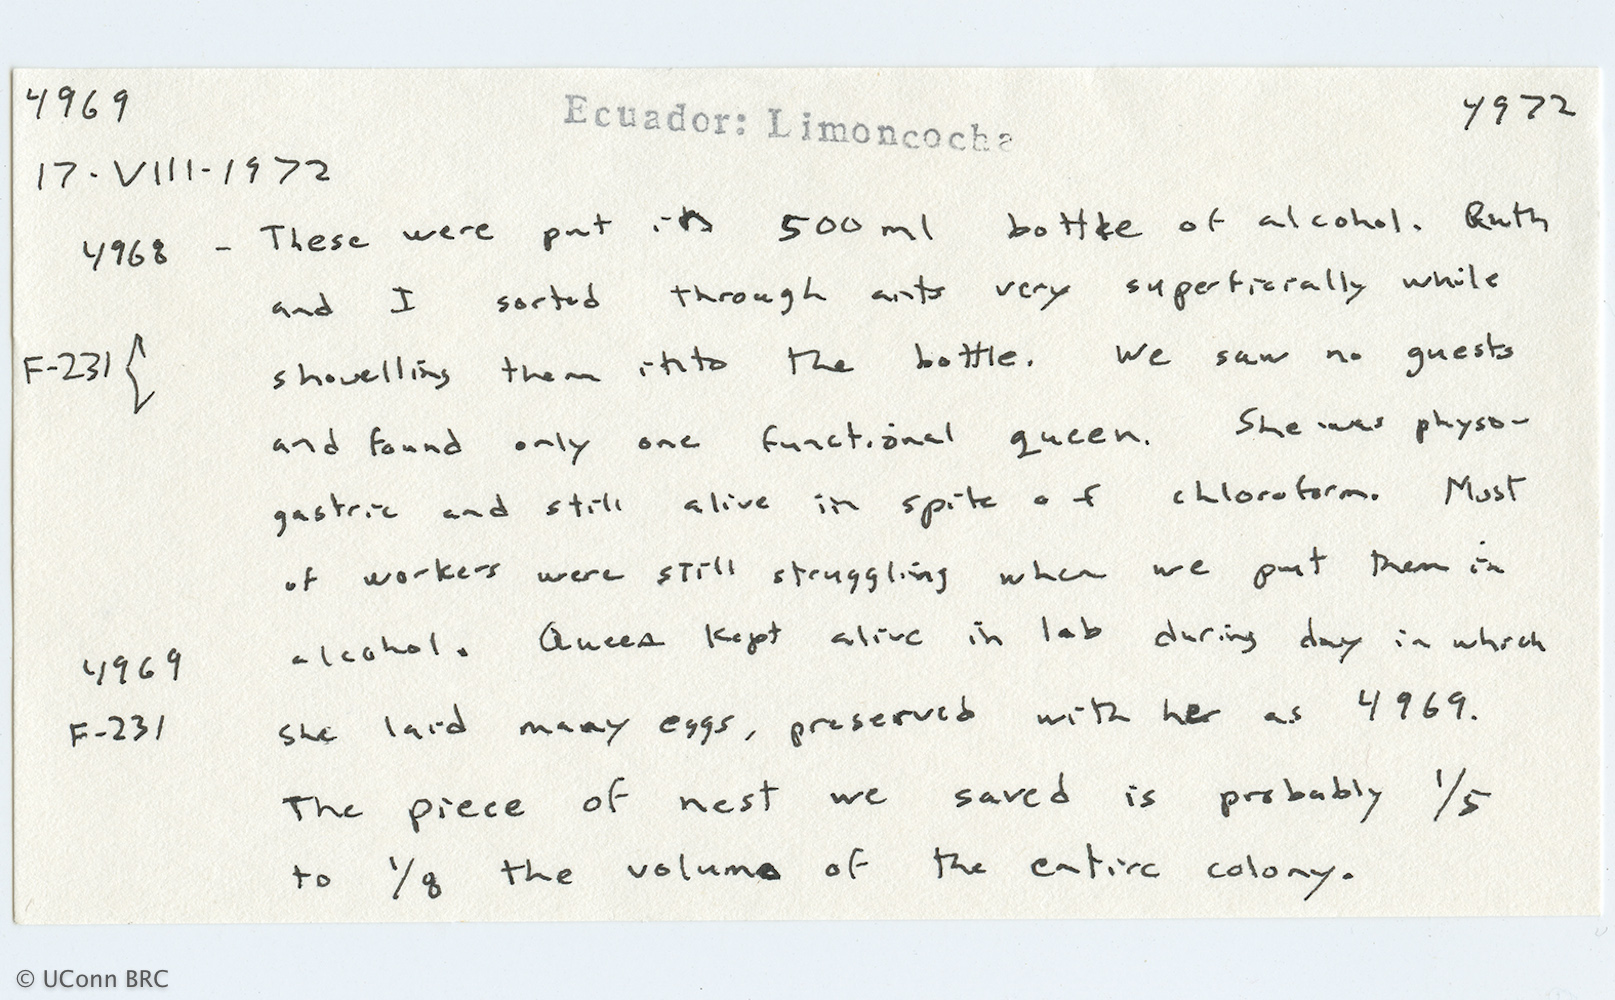 4969 Ecuador: Limoncocha 4972
17-VIII-1972
4968 - These were put in 500 ml bottle of alcohol. Ruth
and I sorted through ants very superficially while
F-231 { shovelling them into the bottle. We saw no guests
and found only one functional queen. She was physo-
gastric and still alive in spite of chloroform. Most
of workers were still struggling when we put them in
alcohol. Queen kept alive in lab during day in which
4969
F-231 she laid many eggs, preserved with her as 4969.
The piece of nest we saved is probably 1/5
to 1/8 the volume of the entire colony.
© UConn BRC